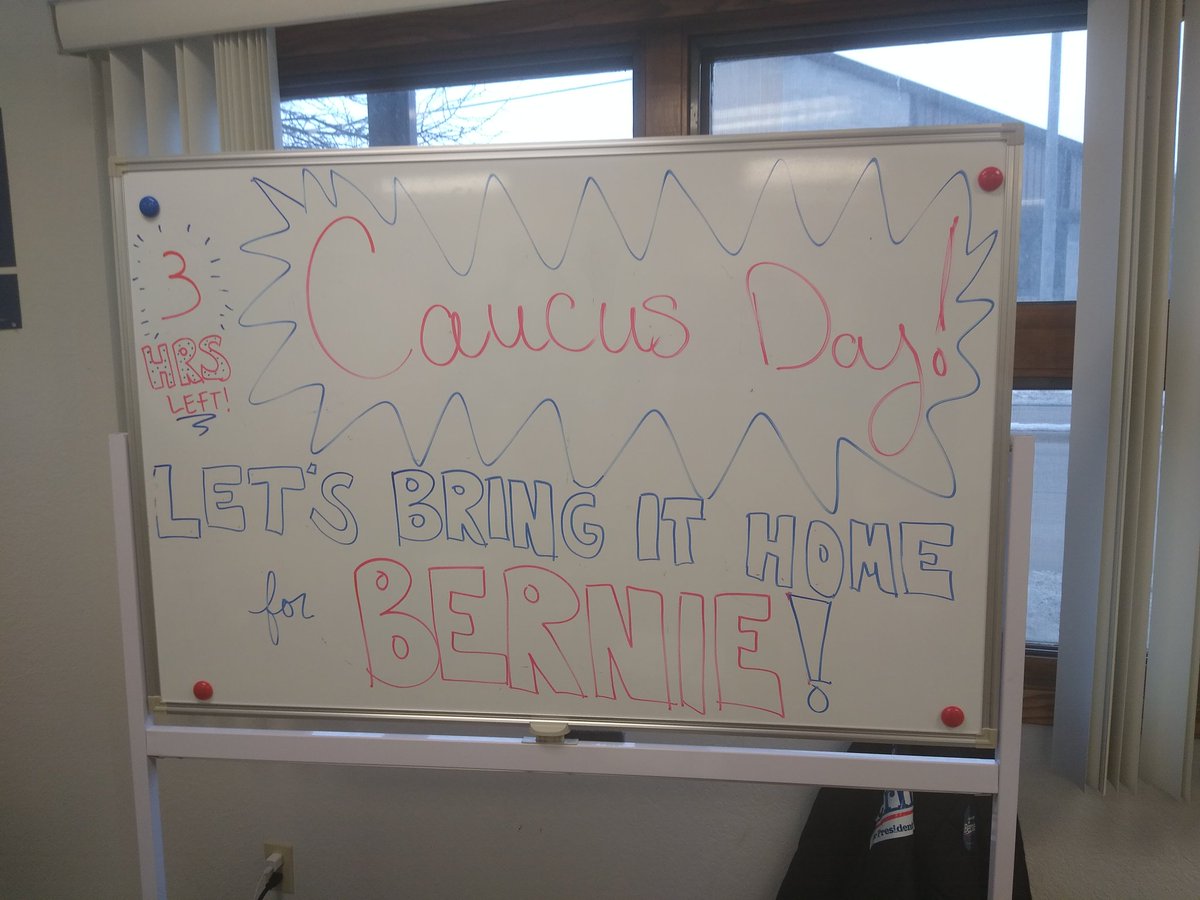 Caucus Day!
3
HRS
LEFT!
LET'S BRING IT HOME
for BERNIE!
President